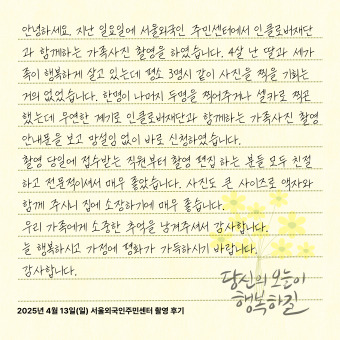 안녕하세요. 지난 일요일에 서울외국인 주민센터에서 인클로버재단
과 함께하는 가족사진 촬영을 하였습니다. 4살 난 딸과 세가
족이 행복하게 살고 있는데 평소 3명이 같이 사진을 찍을 기회는
거의 없었습니다. 한명이 나머지 두명을 찍어주거나 셀카로 찍곤
했는데 우연한 계기로 인클로버재단과 함께하는 가족사진 촬영
안내문을 보고 망설임 없이 바로 신청하였습니다.
촬영 당일에 접수받는 직원부터 촬영 편집 하는 분들 모두 친절
하고 전문적이셔서 매우 좋았습니다. 사진도 큰 사이즈로 액자와
함께 주시니 집에 소장하기에 매우 좋습니다.
우리 가족에게 소중한 추억을 남겨주셔서 감사합니다.
늘 행복하시고 가정에 평화가 가득하시기 바랍니다.
감사합니다.
당신의 오늘이
행복하길
2025년 4월 13일(일) 서울외국인주민센터 촬영 후기